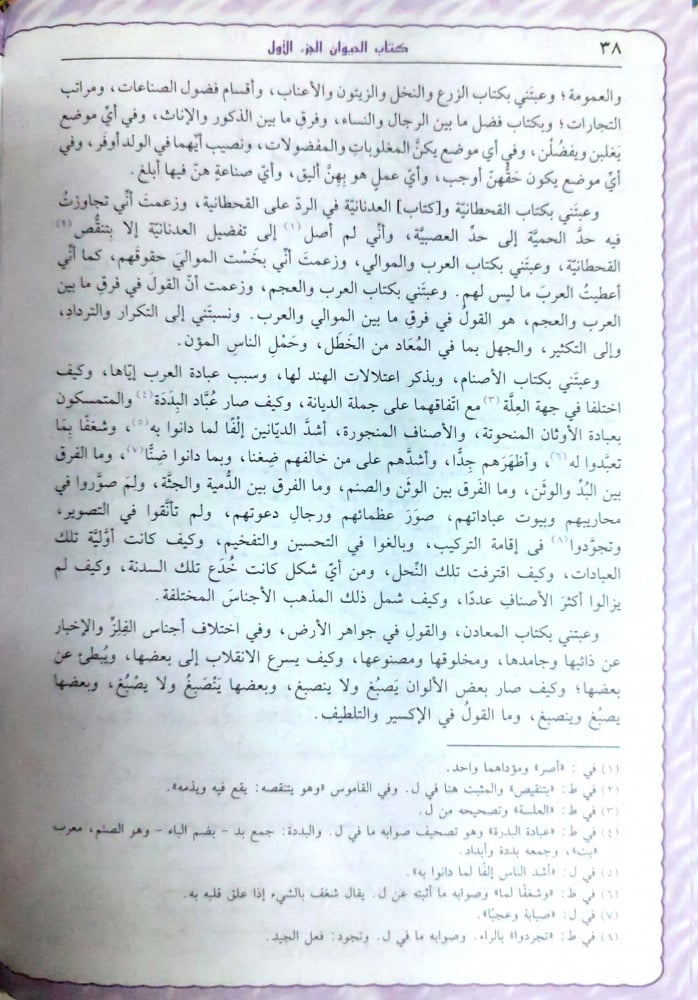 ٣٨
كتاب الحيوان الجزء الأول
والعمومة؛ وعبتَني بكتاب الزرع والنخل والزيتون والأعناب، وأقسام فضول الصناعات، ومراتب
التجارات؛ وبكتاب فضل ما بين الرجال والنساء، وفرقِ ما بين الذكور والإناث، وفي أيّ موضع
يَغلبن ويفضُلْن، وفي أي موضع يكنَّ المغلوباتِ والمفضولات، ونصيب أيّهما في الولد أوفَر، وفي
أيّ موضع يكون حَقُّهنّ أوجب، وأيّ عملٍ هو بِهنَّ أليق، وأيّ صناعةٍ هنّ فيها أبلغ.
وعبتَني بكتاب القحطانيّة و[كتاب] العدنانيّة في الردّ على القحطانية، وزعمتَ أنّي تجاوزتُ
فيه حدَّ الحميّة إلى حدِّ العصبيّة، وأنّي لم أصل(١) إلى تفضيل العدنانيّة إلا بِتنقُّص(٢)
القحطانيّة، وعبتَني بكتاب العرب والموالي، وزعمتَ أنّي بخَسْت المواليَ حقوقَهم، كما أنّي
أعطيتُ العربَ ما ليس لهم. وعبتَني بكتاب العرب والعجم، وزعمت أنّ القولَ في فرقِ ما بين
العرب والعجم، هو القولُ في فرقِ ما بين الموالي والعرب. ونسبتَني إلى التكرار والترداد،
وإلى التكثير، والجهل بما في المُعَاد من الخَطَل، وحَمْلِ الناسِ المؤن.
وعبتَني بكتاب الأصنام، وبذكر اعتلالات الهند لها، وسبب عبادة العرب إيّاها، وكيف
اختلفا في جهة العِلَّة(٣) مع اتّفاقهما على جملة الديانة، وكيف صار عُبَّاد البِدَدَة(٤) والمتمسكون
بعبادة الأوثان المنحوتة، والأصناف المنجورة، أشدَّ الديّانين إلْفًا لما دانوا به(٥)، وشغفًا بِمَا
تعبَّدوا له(٦)، وأظهَرَهم جِدًّا، وأشدَّهم على من خالفهم ضِغنا، وبما دانوا ضِنًّا(٧)، وما الفرق
بين البُدِّ والوثَن، وما الفَرق بين الوثَن والصنم، وما الفرق بين الدُّمية والجثّة، ولِمَ صوَّروا في
محاريبهم وبيوت عباداتهم، صوَرَ عظمائهم ورجالِ دعوتهم، ولم تأنَّقوا في التصوير،
وتجوَّدوا(٨) فى إقامة التركيب، وبالغوا في التحسين والتفخيم، وكيف كانت أوَّليَّة تلك
العبادات، وكيف اقترفت تلك النِّحل، ومن أيّ شكل كانت خُدَع تلك السدنة، وكيف لم
يزالوا أكثرَ الأصنافِ عددًا، وكيف شمل ذلك المذهب الأجناسَ المختلفة.
وعبتني بكتاب المعادن، والقولِ في جواهر الأرض، وفي اختلاف أجناس الفِلِزِّ والإخبار
عن ذائبها وجامدها، ومخلوقها ومصنوعها، وكيف يسرع الانقلاب إلى بعضها، ويُبطئ عن
بعضها؛ وكيف صار بعض الألوان يَصبُغ ولا ينصبغ، وبعضها يَنْصَبِغُ ولا يصْبُغ، وبعضها
يصبُغ وينصبغ، وما القولُ في الإكسير والتلطيف.
(١) في : «أصر» ومؤداهما واحد.
(٢) في ط: «بتنقيص» والمثبت هنا في ل. وفي القاموس «وهو يتنقصه: يقع فيه ويذمه».
(٣) في ط: «العلسة» وتصحيحه من ل.
(٤) في ط: «عبادة البدرة» وهو تصحيف صوابه ما في ل. والبددة: جمع بد - بضم الباء - وهو الصنم، معرب
«بت»، وجمعه بددة وأبداد.
(٥) في ل: «أشد الناس إلفًا لما دانوا به».
(٦) في ط: «وشغفًا لما» وصوابه ما أثبته عن ل. يقال شغف بالشيء إذا علق قلبه به.
(٧) في ل: «صبابة وعجبًا».
(٨) في ط: «تجردوا» بالراء. وصوابه ما في ل. وتجود: فعل الجيد.